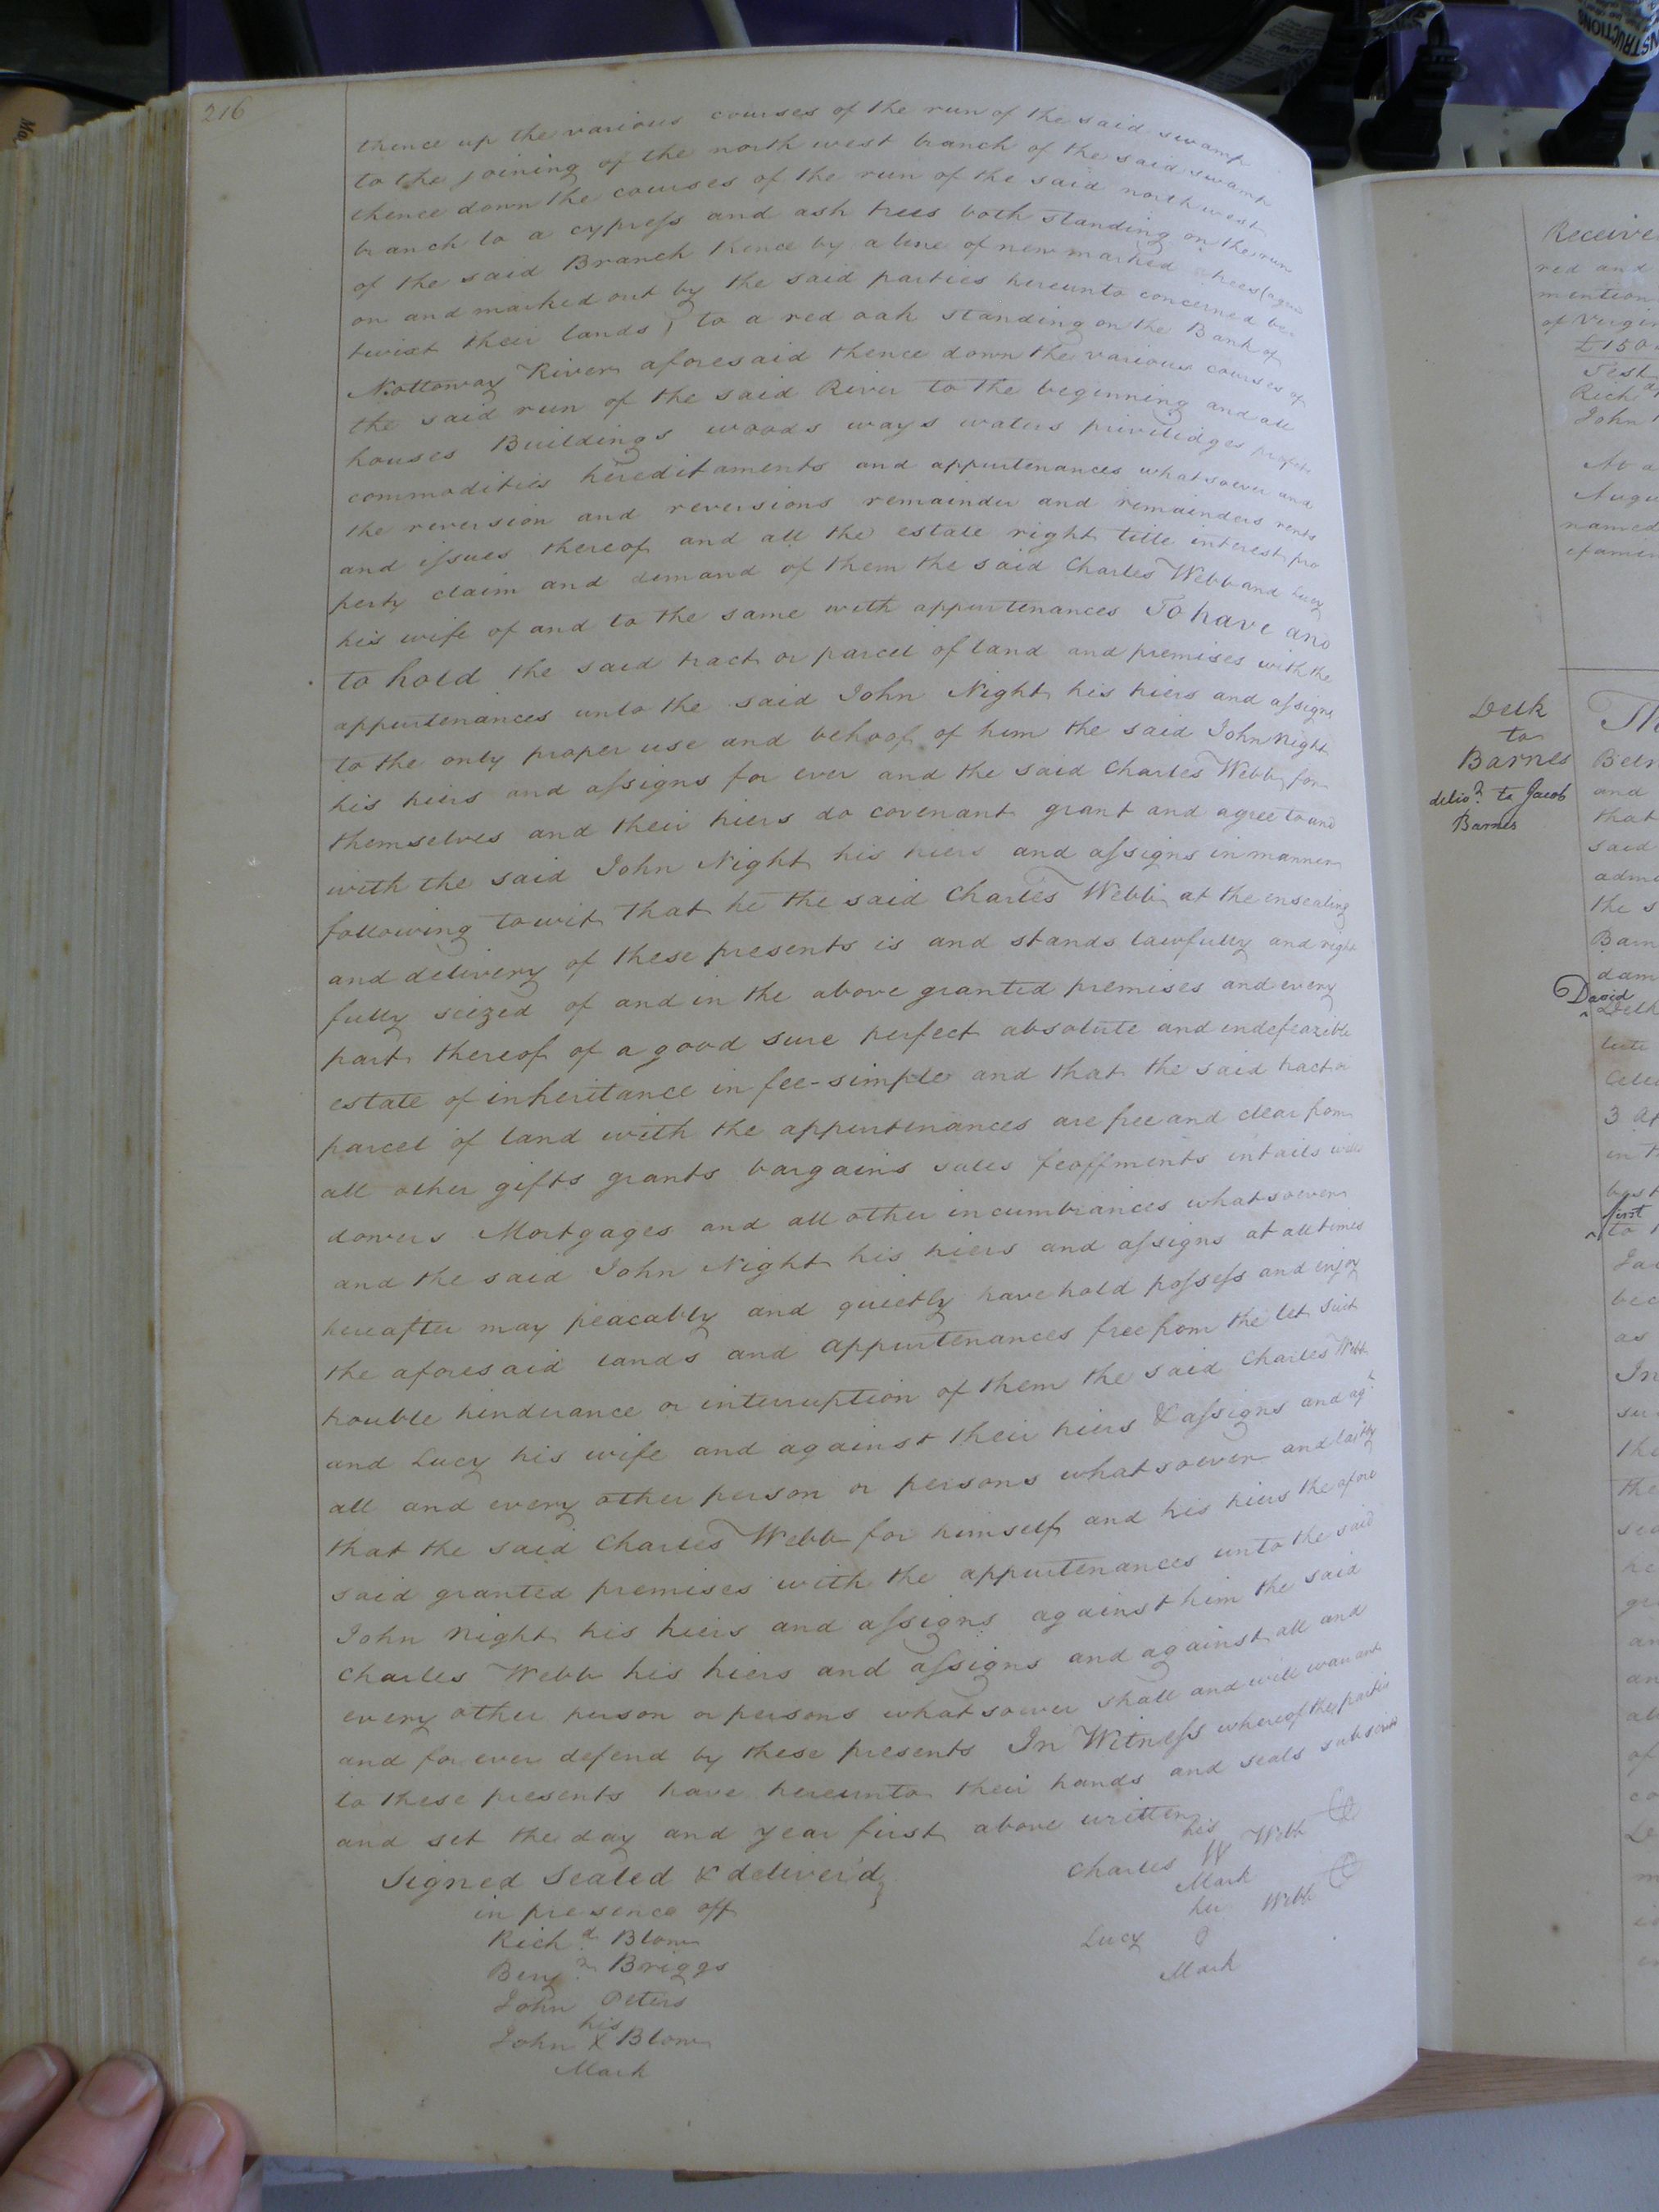 216
thence up the various courses of the run of the said swamp
to the joining of the north west branch of the said swamp
thence down the courses of the run of the said north west
branch to a cypress and ash trees both standing on the run
of the said Branch thence by a line of new marked trees (agreed
on and marked out by the said parties hereunto concerned be
twixt their lands) to a red oak standing on the Bank of
Nottoway River aforesaid thence down the various courses of
the said run of the said River to the beginning and all
houses Buildings woods ways waters priviledges profits
commodities hereditaments and appurtenances whatsoever and
the reversion and reversions remainder and remainders rents
and issues thereof and all the estate right title interest pro
perty claim and demand of them the said Charles Webb and Lucy
his wife of and to the same with appurtenances To have and
to hold the said tract or parcel of land and premises with the
appurtenances unto the said John Night his hiers and assigns
to the only proper use and behoof of him the said John Night
his hiers and assigns for ever and the said Charles Webb for
themselves and their hiers do covenant grant and agree to and
with the said John Night his hiers and assigns in manner
following towit that he the said Charles Webb at the ensealing
and delivery of these presents is and stands lawfully and right
fully seized of and in the above granted premises and every
part thereof of a good sure perfect absolute and indefeazible
estate of inheritance in fee-simple and that the said tract or
parcel of land with the appurtenances are free and clear from
all other gifts grants bargains sales feoffments intails wills
dowers Mortgages and all other incumbrances whatsoever
and the said John Night his hiers and assigns at all times
hereafter may peacably and quietly have hold possess and injoy
the aforesaid lands and appurtenances free from the let suit
trouble hinderance or interruption of them the said Charles Webb
and Lucy his wife and against their hiers & assigns and agt
all and every other person or persons whatsoever and lastly
that the said Charles Webb for himself and his hiers the afore
said granted premises with the appurtenances unto the said
John Night his hiers and assigns against him the said
Charles Webb his hiers and assigns and against all and
every other person or persons whatsoever shall and will warrant
and for ever defend by these presents In Witness whereof the parties
to these presents have hereunto their hands and seals subscribd
and set the day and year first above written
Signed Sealed & deliver'd
in presence off
Richd Blow
Benjn Briggs
John Peters
his
John X Blow
Mark
his
Charles W Webb
Mark
her
Lucy O Webb
Mark
Receive
red and
mention
of Virgin
£150
Test
Richd
John
At a
Augu
named
Delk
to
Barnes
delivd to Jacob
Barnes
and
that
said
the s
David
Delk
first
to
as
In
the
the
he
an
of
INSTRUCTIONS